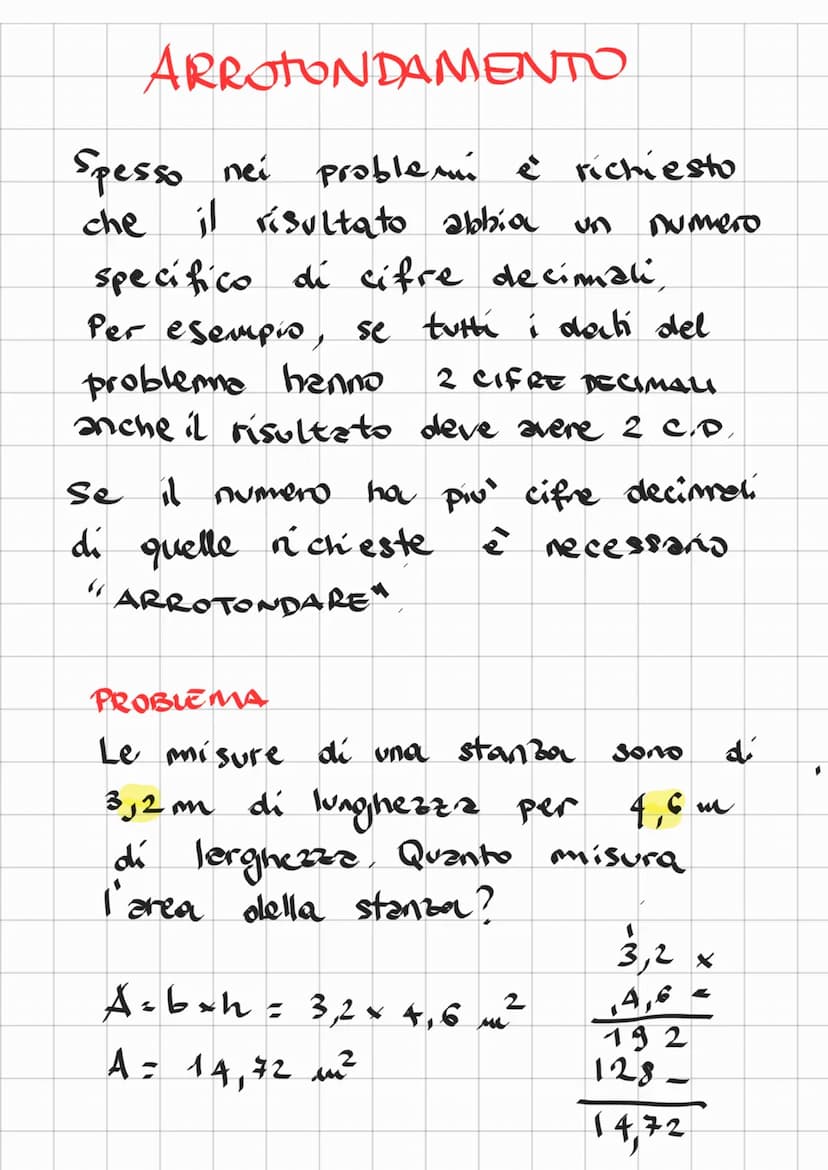 ARROTONDAMENTO
Spesso nei problemi è richiesto
che il risultato abbia un numero
specifico di cifre decimali.
Per esempio, se tutti i dati del
problema hanno 2 CIFRE DECIMALI
anche il risultato deve avere 2 C.D.
Se il numero ha piu' cifre decimali
di quelle richieste è necessario
"ARROTONDARE".
PROBLEMA
Le misure di una stanza sono di
3,2 m di lunghezza per 4,6 m
di larghezza. Quanto misura
l'area della stanza?
1
3,2 x
4,6 =
A = b x h = 3,2 x 4,6 m²
192
A = 14,72 m²
128-
14,72